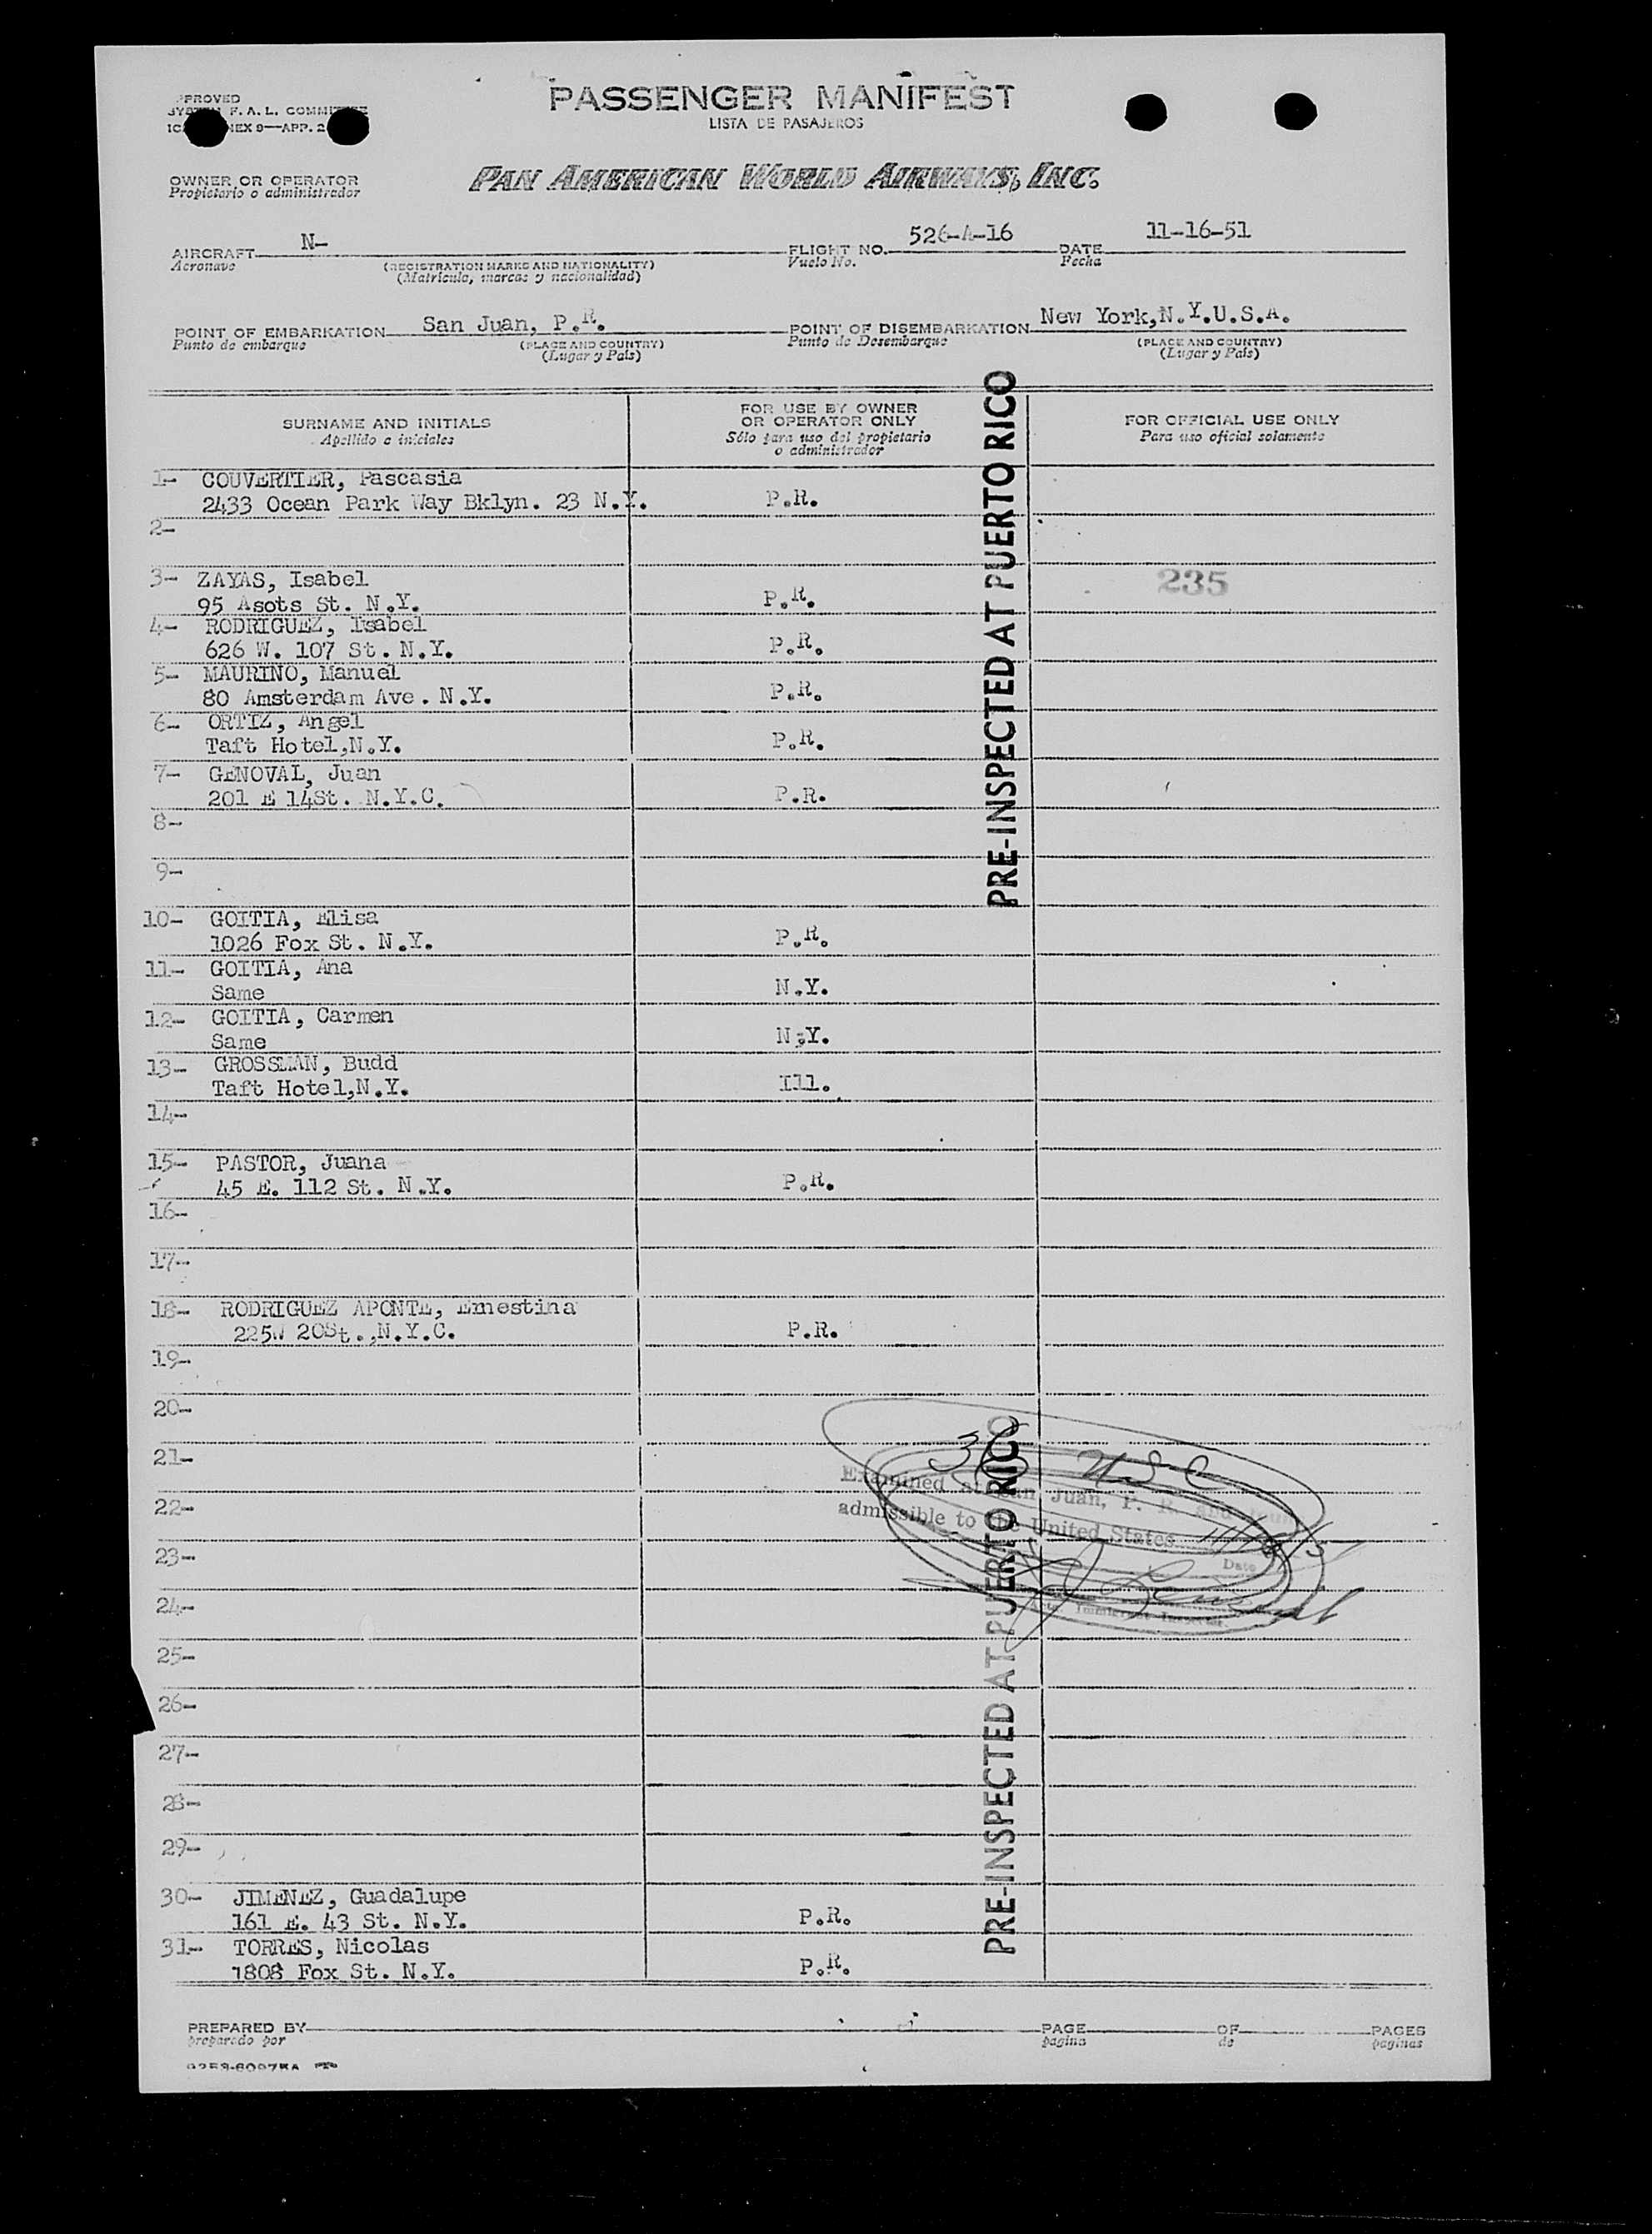 PASSENGER MANIFEST
LISTA DE PASAJEROS
OWNER OR OPERATOR
Propietario o administrador
PAN AMERICAN WORLD AIRWAYS, INC.
AIRCRAFT N- FLIGHT NO. 526-A-16 DATE 11-16-51
Aeronave (REGISTRATION MARKS AND NATIONALITY) Vuelo No. Fecha
(Matricula, marcas y nacionalidad)
POINT OF EMBARKATION San Juan, P.R. POINT OF DISEMBARKATION New York,N.Y.U.S.A.
Punto de embarque (PLACE AND COUNTRY) Punto de Desembarque (PLACE AND COUNTRY)
(Lugar y País) (Lugar y País)
SURNAME AND INITIALS FOR USE BY OWNER OR OPERATOR ONLY FOR OFFICIAL USE ONLY
Apellido e iniciales Sólo para uso del propietario o administrador Para uso oficial solamente
PRE-INSPECTED AT PUERTO RICO
1- COUVERTIER, Pascasia
2433 Ocean Park Way Bklyn. 23 N.Y. P.R.
2-
3- ZAYAS, Isabel 235
95 Asots St. N.Y. P.R.
4- RODRIGUEZ, Isabel
626 W. 107 St. N.Y. P.R.
5- MAURINO, Manuel
80 Amsterdam Ave. N.Y. P.R.
6- ORTIZ, Angel
Taft Hotel,N.Y. P.R.
7- GENOVAL, Juan
201 E 14St. N.Y.C. P.R.
8-
9-
10- GOITIA, Elisa
1026 Fox St. N.Y. P.R.
11- GOITIA, Ana
Same N.Y.
12- GOITIA, Carmen
Same N.Y.
13- GROSSMAN, Budd
Taft Hotel,N.Y. Ill.
14-
15- PASTOR, Juana
45 E. 112 St. N.Y. P.R.
16-
17-
18- RODRIGUEZ APONTE, Ernestina
225W 20St.,N.Y.C. P.R.
19-
20-
21-
36 USC
Examined at San Juan, P. R. and
22-
admissible to the United States
23-
Date
24-
25-
26-
27-
28-
29-
PRE-INSPECTED AT PUERTO RICO
30- JIMENEZ, Guadalupe
161 E. 43 St. N.Y. P.R.
31- TORRES, Nicolas
1808 Fox St. N.Y. P.R.
PREPARED BY PAGE OF PAGES
preparado por pagina de paginas